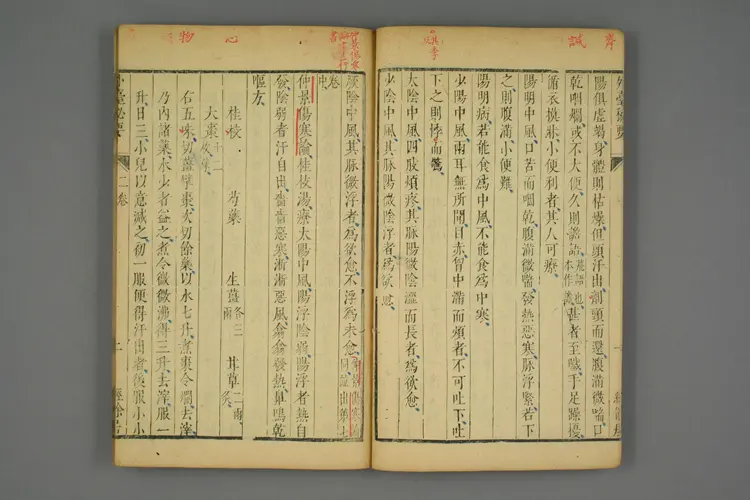 齊 誠
陽俱虛竭身體則枯燥但頭汗出劑頸而還腹滿微喘口
乾咽爛或不大便久則讝語甚者至噦手足躁擾
循衣摸牀小便利者其人可療
陽明中風口苦而咽乾腹滿微喘發熱惡寒脉浮緊若下
之則腹滿小便難
陽明病若能食爲中風不能食爲中寒
少陽中風兩耳無所聞目赤胷中滿而煩者不可吐下吐
下之則悸而驚
太陰中風四肢煩疼其脉陽微陰濇而長者爲欲愈
少陰中風其脉陽微陰浮者爲欲愈
心 物
厥陰中風其脉微浮者爲欲愈不浮爲未愈
卷
中
仲景傷寒論桂枝湯療太陽中風陽浮陰弱陽浮者熱自
發陰弱者汗自出嗇嗇惡寒淅淅惡風翕翕發熱鼻鳴乾
嘔方
桂枝 芍藥 生薑各三兩 甘草二兩炙
大棗十二枚擘
右五味切薑擘棗次切餘藥以水七升煮棗令爛去滓
乃內諸藥水少者益之煮令微微沸得三升去滓服一
升日三小兒以意減之初一服便得汗出者後服小小
外臺秘要 二卷 二 經餘居